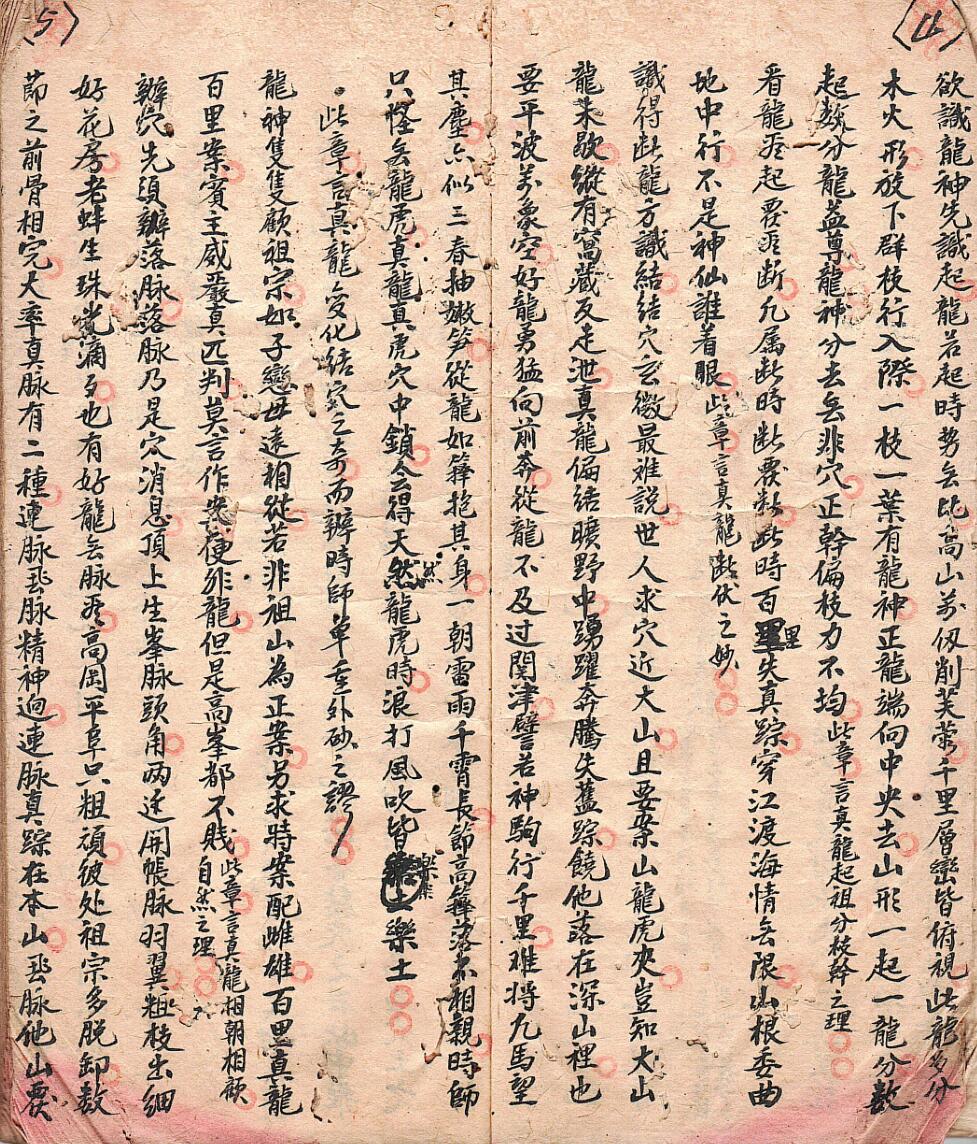 4
欲識龍神先識起龍若起時勢无比高山万仞削芙蓉千里層巒皆俯視此龍多分
木火形放下群枝行入際一枝一葉有龍神正龍端向中央去山形一起一龍分数
起数分龍益尊龍神分去无非穴正幹偏枝力不均此章言真龍起祖分枝幹之理
看龍起要断九属此時断要此時百里失真踪穿江渡海情无限山根委曲
地中行不是神仙誰着眼此章言真龍断伏之妙
識得此龍方識結結穴玄微最难說世人求穴近大山且要案山龍虎夾豈知大山
龍未歇縱有窩藏反走泄真龍偏結曠野中踴躍奔騰失蓋踪饒他落在深山裡也
要平波万象空好龍勇猛向前奔從龍不及过関津譬若神駒行千里难將凡馬望
其塵亦似三春抽嫩笋從龍如籜抱其身一朝雷雨千霄長節高籜落不相親時師
只怪无龍虎真龍真虎穴中鎖会得天然龍虎時浪打風吹皆樂土
此章言真龍变化結穴之奇而辨時師单重外砂之謬
龍神隻隻顧祖宗如子戀母遠相從若非祖山為正案另求特案配雌雄百里真龍
百里案賓主威嚴真匹判莫言作案便非龍但是高峯都不賤此章言真龍相朝相顧自然之理
辨穴先須辨落脉落脉乃是穴消息頂上生峯脉頭角両边開帳脉羽翼粗枝出細
好花房老蚌生珠光滴多也有好龍无脉高岡平阜只粗頑彼处祖宗多脱卸数
節之前骨相完大率真脉有二種連脉飛脉精神逈連脉真踪在本山飛脉他山
5